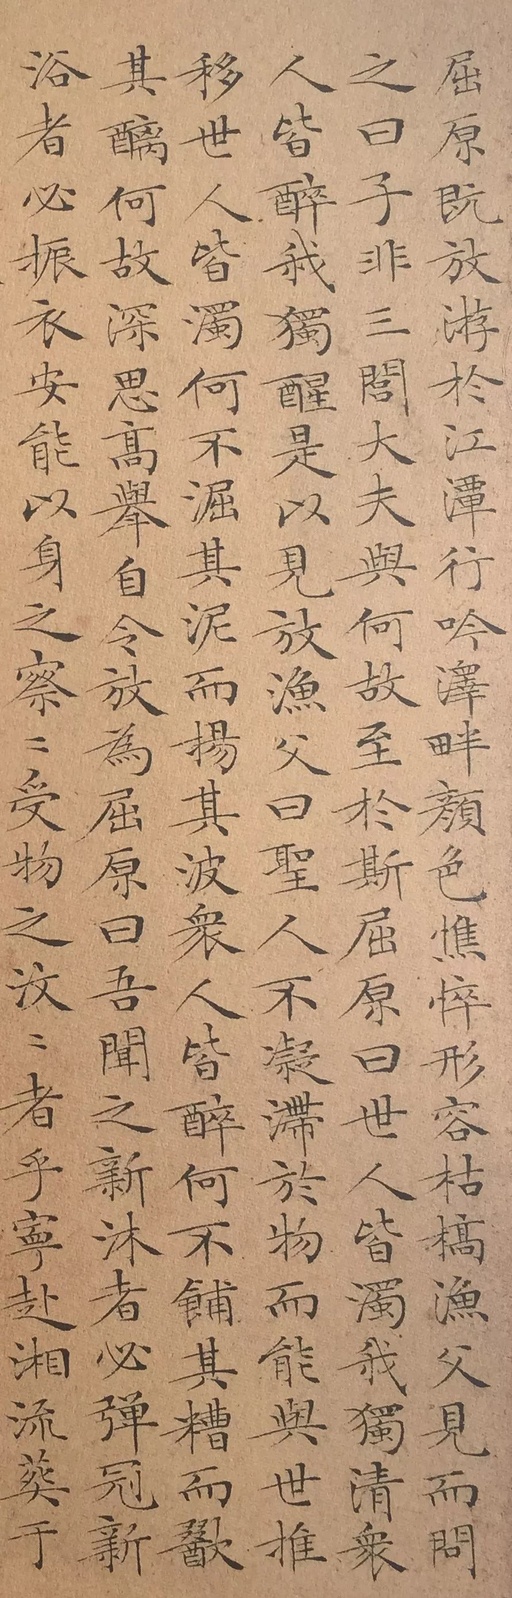 屈原既放游於江潭行吟澤畔顏色憔悴形容枯槁漁父見而問
之曰子非三閭大夫與何故至於斯屈原曰世人皆濁我獨清衆
人皆醉我獨醒是以見放漁父曰聖人不凝滯於物而能與世推
移世人皆濁何不淈其泥而揚其波衆人皆醉何不餔其糟而歠
其醨何故深思高舉自令放為屈原曰吾聞之新沐者必彈冠新
浴者必振衣安能以身之察〻受物之汶〻者乎寧赴湘流葬于